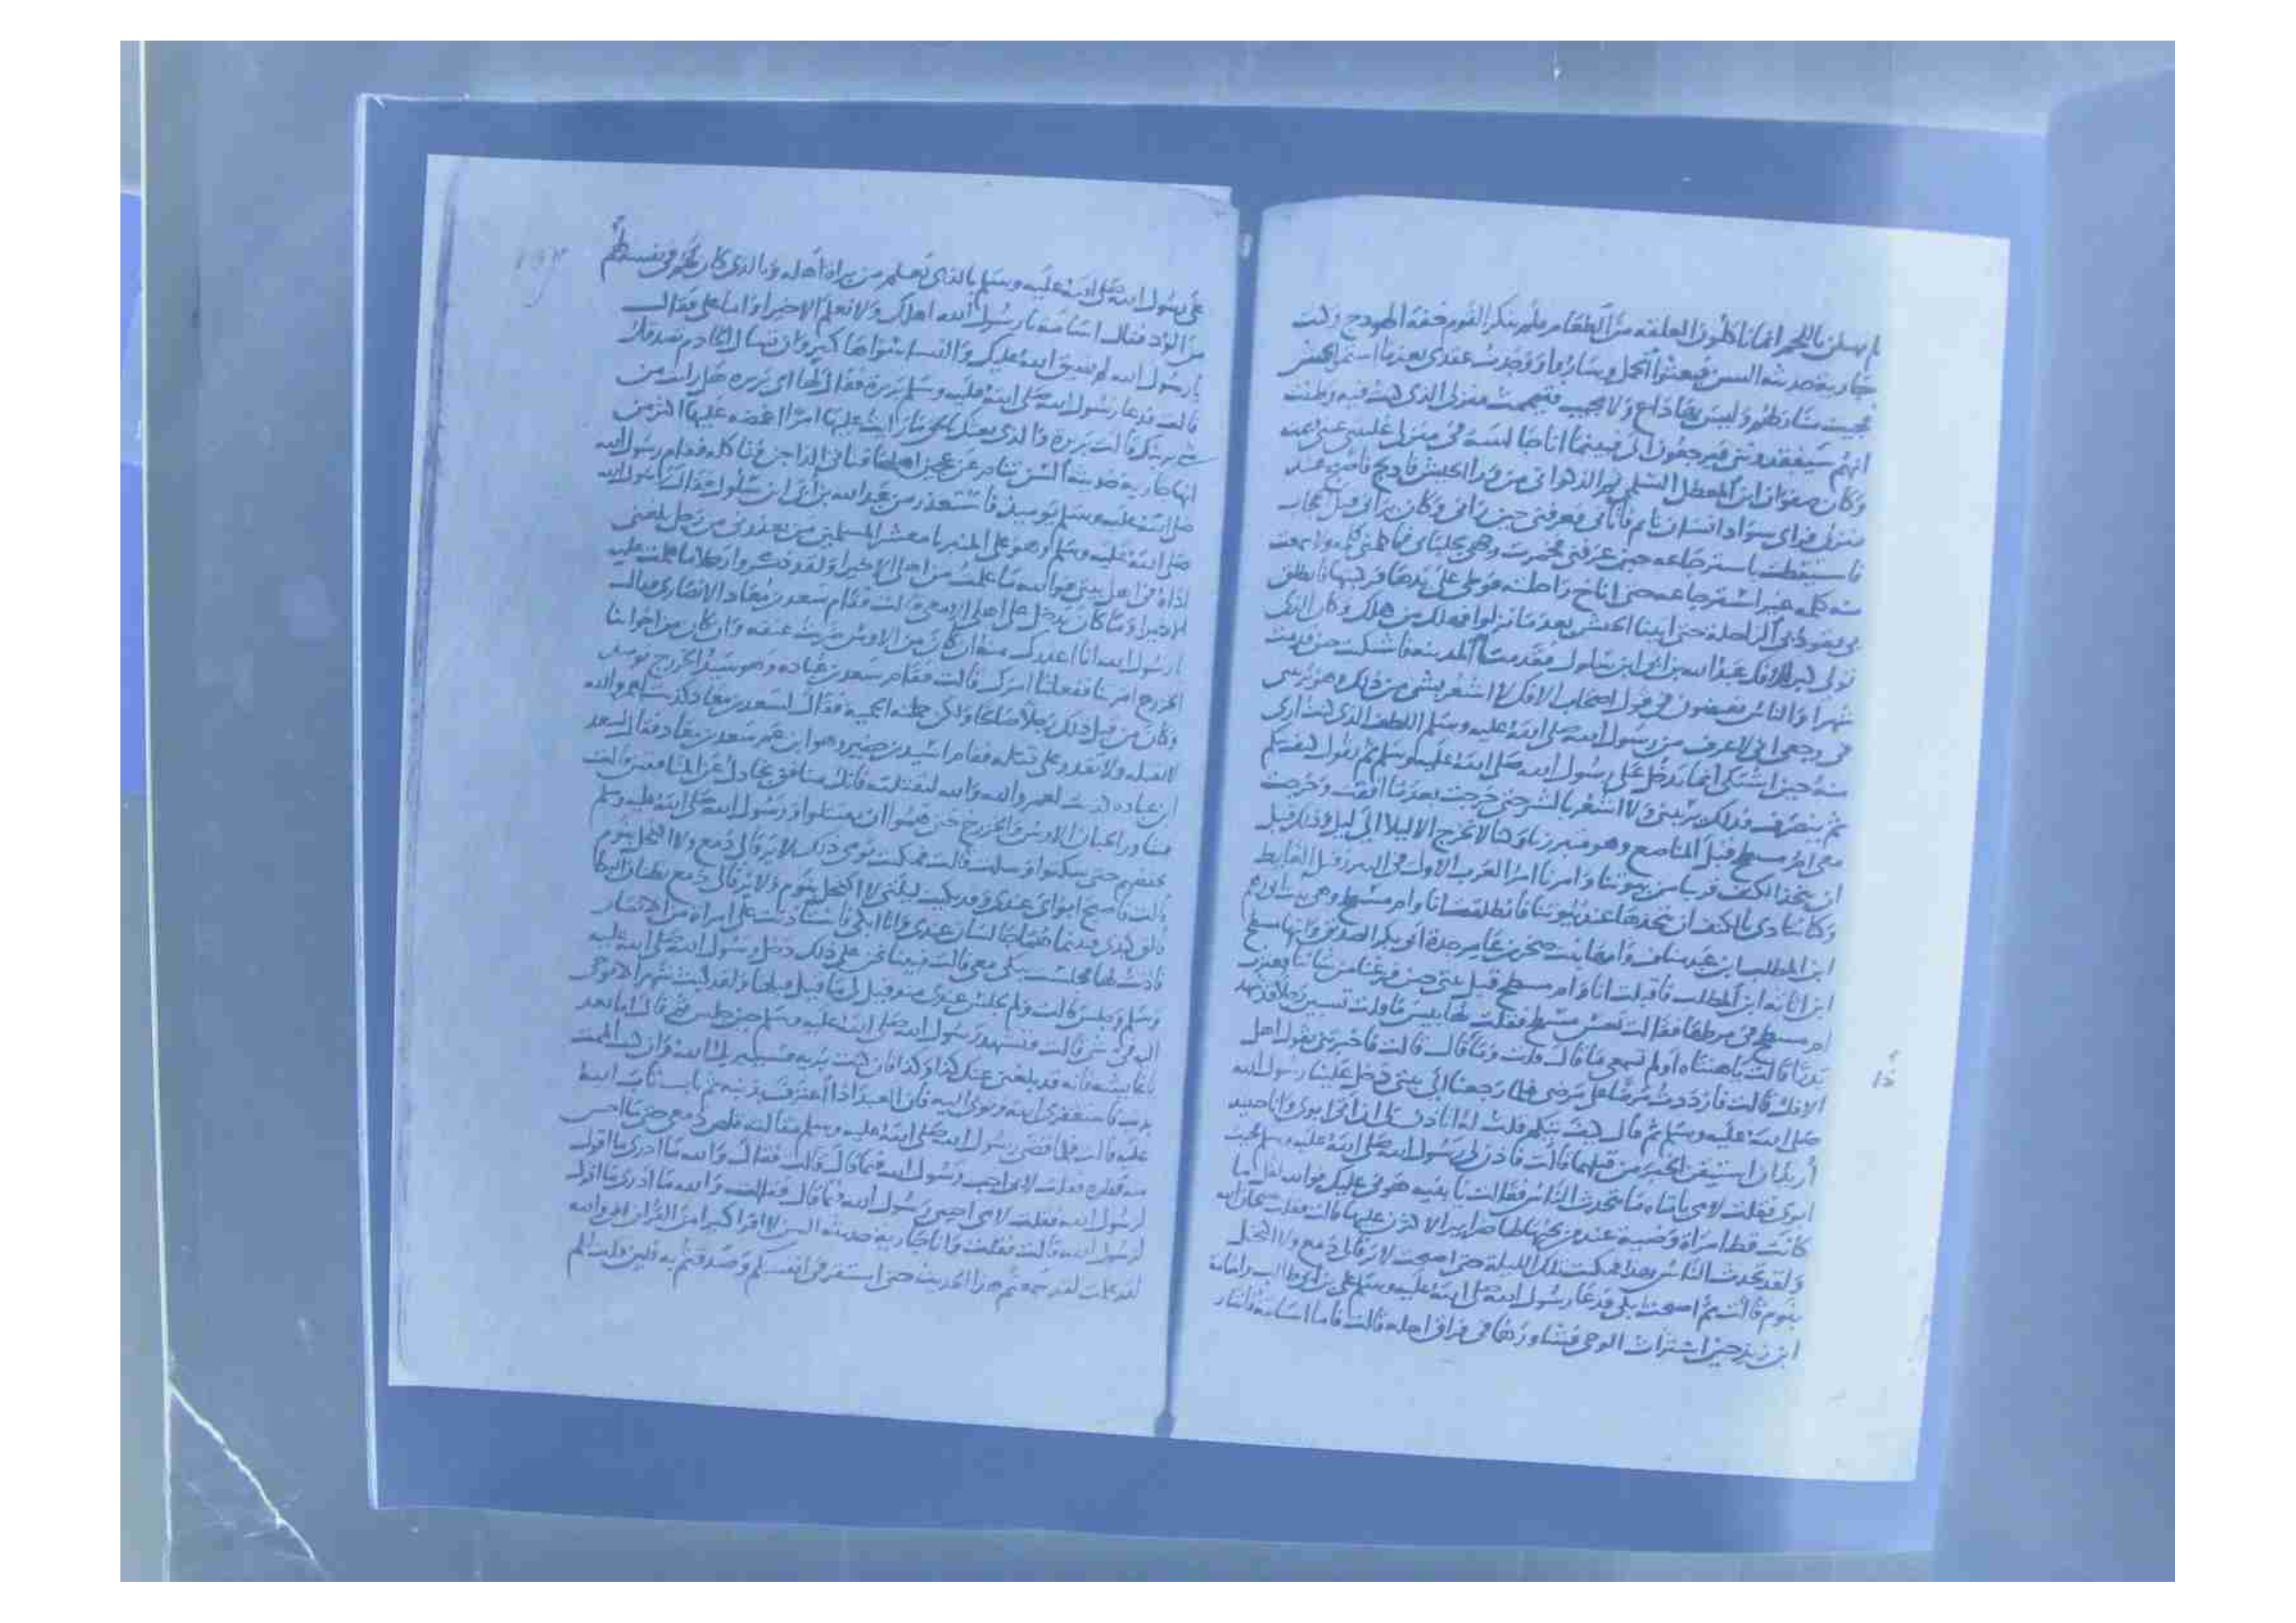 لم يهبلن باللحم انما ناكلون العلقه من الطعام فلم ينكر القوم خفة الهودج وكنت
جارية حديثه السن فبعثوا الجمل وساروا ووجدت عقدي بعدما استمر الجيش
فجيت منازلهم وليس بها داع ولا مجيب فتيممت منزلى الذى كنت فيه وظننت
انهم سيفقدونى فيرجعون الى فبينما انا جالسة فى منزلى غلبتنى عينى فنمت
وكان صفوان ابن المعطل السلمى ثم الذكوانى من ورا الجيش فادلج فاصبح عند
منزلى فراى سواد انسان نايم فاتانى فعرفنى حين رانى وكان يرانى قبل الحجاب
فاستيقظت باسترجاعه حين عرفنى فخمرت وجهى بجلبابى فما كلمنى كلمه ولا سمعت
منه كلمه غير استرجاعه حتى اناخ راحلته فوطى على يدها فركبتها فانطلق
بى يقود بى الراحلة حتى اتينا الجيش بعد ما نزلوا فهلك من هلك وكان الذى
تولى كبر الافك عبد الله بن ابى ابن سلول فقدمت المدينة فاشتكيت حين قدمت
شهرا والناس يفيضون فى قول اصحاب الافك لا اشعر بشى من ذلك وهو يريبنى
فى وجعى انى لا اعرف من رسول الله صلى الله عليه وسلم اللطف الذى كنت ارى
منه حين اشتكى انما يدخل على رسول الله صلى الله عليه وسلم ثم يقول كيف تيكم
ثم ينصرف فذلك يريبنى ولا اشعر بالشر حتى خرجت بعدما افقت وخرجت
معى ام مسطح قبل المناصع وهو متبرزنا وكنا لا نخرج الا ليلا الى ليل وذلك قبل
ان نتخذ الكنف قريبا من بيوتنا وامرنا امر العرب الاول فى التبرز قبل الغايط
وكنا نتاذى بالكنف ان نتخذها عند بيوتنا فانطلقت انا وام مسطح وهى بنت ابى رهم
ابن المطلب ابن عبد مناف وامها بنت صخر بن عامر خالة ابى بكر الصديق وابنها مسطح
ابن اثاثة ابن المطلب فاقبلت انا وام مسطح قبل بيتى حين فرغنا من شاننا فعثرت
ام مسطح فى مرطها فقالت تعس مسطح فقلت لها بيس ما قلت تسبين رجلا قد شهد
بدرا قالت يا هنتاه اولم تسمعى ما قال قلت وما قال قالت فاخبرتنى بقول اهل
الافك قالت فازددت مرضا على مرضى فلما رجعنا الى بيتى دخل علينا رسول الله
صلى الله عليه وسلم ثم قال كيف تيكم قلت له اتاذن لى ان اتى ابوى وانا حينيد
اريد ان استيقن الخبر من قبلهما قالت فاذن لى رسول الله صلى الله عليه وسلم فجيت
ابوى فقلت لامى يا امتاه ما يتحدث الناس فقالت يا بنيه هونى عليك فوالله لقل ما
كانت قط امراة وضية عند رجل يحبها لها ضراير الا كثرن عليها قالت فقلت سبحان الله
ولقد تحدث الناس بهذا فبكيت تلك الليلة حتى اصبحت لا يرقا لى دمع ولا اكتحل
بنوم قالت ثم اصبحت ابكى فدعا رسول الله صلى الله عليه وسلم على بن ابى طالب واسامة
ابن زيد حين استلبث الوحى فيشاورهما فى فراق اهله قالت فاما اسامة فاشار
على رسول الله صلى الله عليه وسلم بالذى يعلم من براة اهله وبالذى كان يعلم فى نفسه لهم
من الود فقال اسامة يا رسول الله اهلك ولا نعلم الا خيرا واما على فقال
يا رسول الله لم يضيق الله عليك والنسا سواها كثير وان تسال الخادم تصدقك
قالت فدعا رسول الله صلى الله عليه وسلم بريرة فقال لها اى بريره هل رايت من
شى يريبك قالت بريرة والذى بعثك بالحق ما رايت عليها امرا اغمصه عليها اكثر من
انها جارية حديثة السن تنام عن عجين اهلها فتاتى الداجن فتاكله فقام رسول الله
صلى الله عليه وسلم يوميذ فاستعذر من عبد الله بن ابى ابن سلول فقال رسول الله
صلى الله عليه وسلم وهو على المنبر يا معشر المسلمين من يعذرنى من رجل بلغنى
اذاه فى اهل بيتى فوالله ما علمت من اهلى الا خيرا ولقد ذكروا رجلا ما علمت عليه
الا خيرا وما كان يدخل على اهلى الا معى قالت فقام سعد بن معاذ الانصارى فقال
يا رسول الله انا اعذرك منه ان كان من الاوس ضربت عنقه وان كان من اخواننا
الخزرج امرتنا ففعلنا امرك قالت فقام سعد بن عباده وهو سيد الخزرج
وكان من قبل ذلك رجلا صالحا ولكن حملته الحمية فقال لسعد بن معاذ كذبت لعمر والله
لا تقتله ولا تقدر على قتله فقام اسيد بن حضير وهو ابن عم سعد بن معاذ فقال لسعد
ابن عباده كذبت لعمر والله والله لنقتلنه فانك منافق تجادل عن المنافقين قالت
فتثاور الحيان الاوس والخزرج حتى هموا ان يقتتلوا ورسول الله صلى الله عليه وسلم
يخفضهم حتى سكتوا وسكت قالت فبكيت يومى ذلك لا يرقا لى دمع ولا اكتحل بنوم
قالت فاصبح ابواى عندى وقد بكيت ليلتى لا اكتحل بنوم ولا يرقا لى دمع يظنان ان البكا
فالق كبدى فبينما هما جالسان عندى وانا ابكى فاستاذنت على امراة من الانصار
فاذنت لها فجلست تبكى معى قالت فبينا نحن على ذلك دخل رسول الله صلى الله عليه
وسلم وجلس قالت ولم يجلس عندى منذ قيل لى ما قيل قبلها ولقد لبث شهرا لا يوحى
اليه فى شى قالت فتشهد رسول الله صلى الله عليه وسلم حين جلس ثم قال اما بعد
يا عايشه فانه قد بلغنى عنك كذا وكذا فان كنت بريه فسيبريك الله وان كنت الممت
بذنب فاستغفرى الله وتوبى اليه فان العبد اذا اعترف بذنبه ثم تاب تاب الله
عليه قالت فلما قضى رسول الله صلى الله عليه وسلم مقالته قلص دمعى حتى ما احس
منه قطره فقلت لابى اجب رسول الله فيما قال قالت فقال والله ما ادرى ما اقول
لرسول الله فقلت لامى اجيبى رسول الله فيما قال فقالت والله ما ادرى ما اقول
لرسول الله قالت فقلت وانا جارية حديثه السن لا اقرا كثيرا من القران انى والله
لقد علمت لقد سمعتم هذا الحديث حتى استقر فى انفسكم وصدقتم به فلين قلت لكم